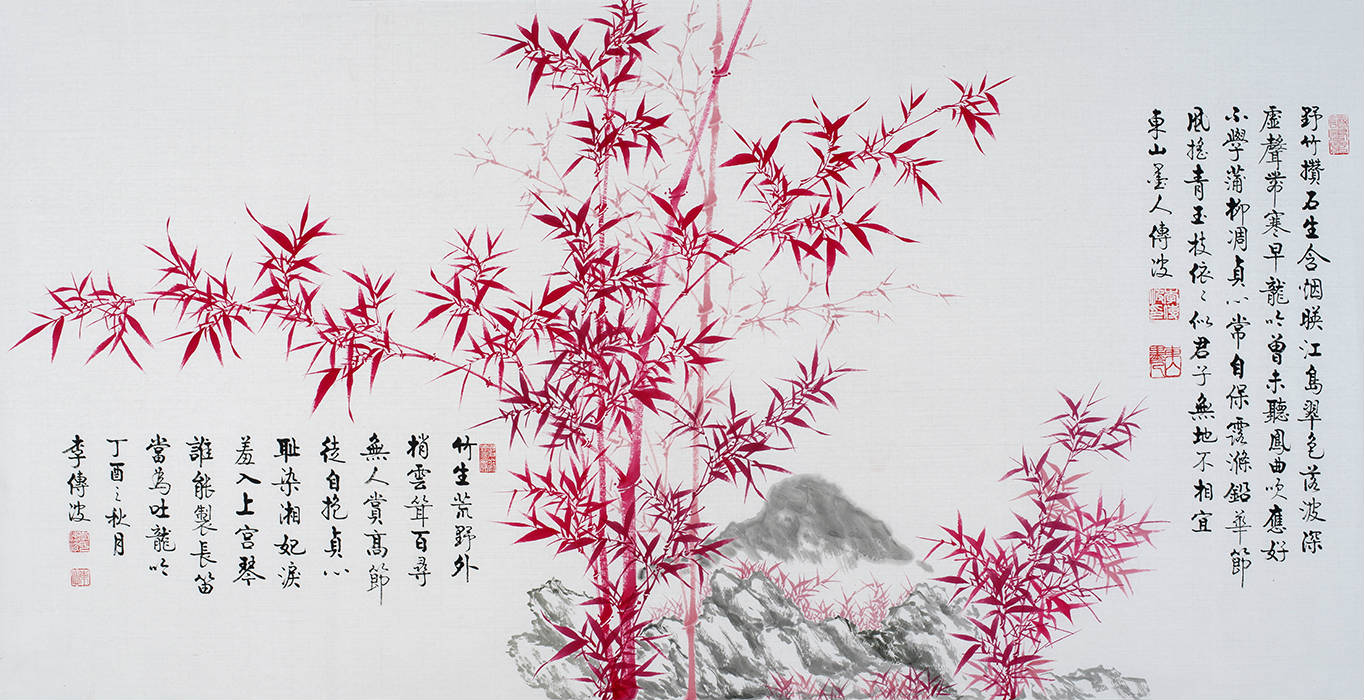 野竹攢石生含烟暎江島翠色落波深
虛聲帶寒早龍吟曾未聽鳳曲吹應好
不學蒲柳凋貞心常自保露滌鉛華節
風搖青玉枝依〻似君子無地不相宜
東山墨人傳波
竹生荒野外
梢雲聳百尋
無人賞高節
徒自抱貞心
耻染湘妃淚
羞入上宮琴
誰能製長笛
當為吐龍吟
丁酉之秋月
李傳波